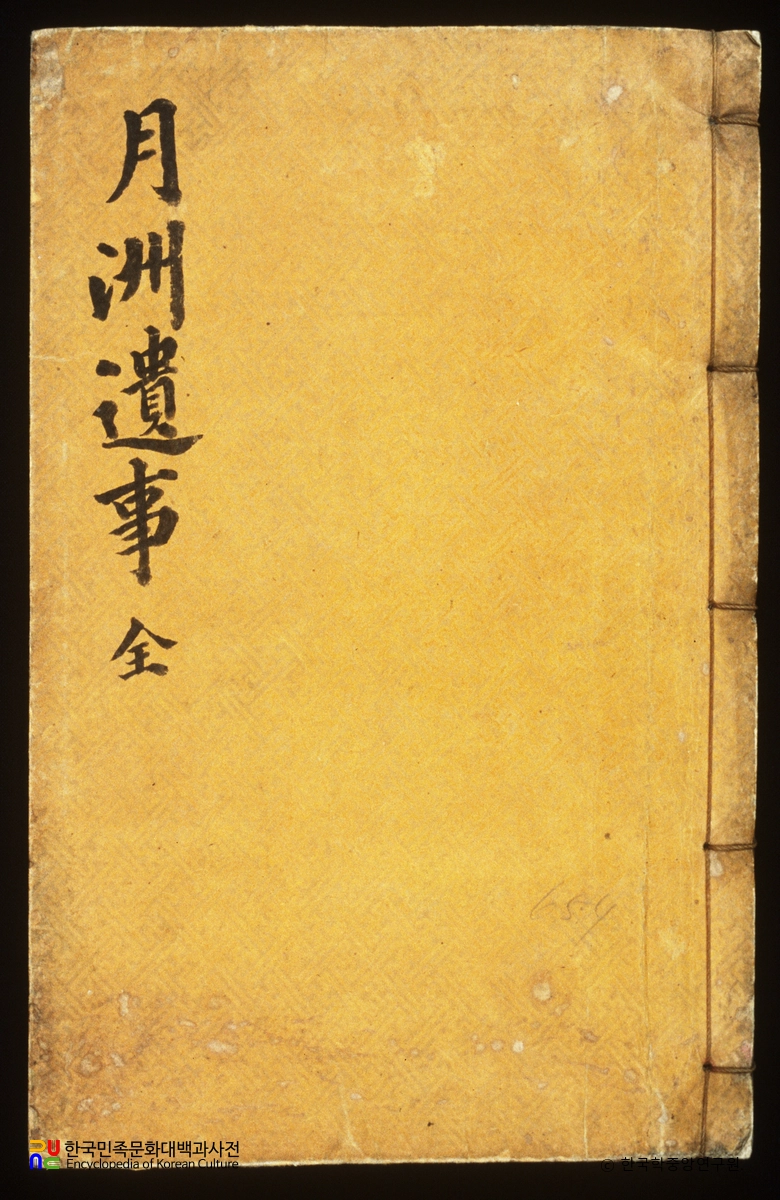 月洲遺事 全
654
한국민족문화대백과사전
Encyclopedia of Korean Culture
© 한국학중앙연구원